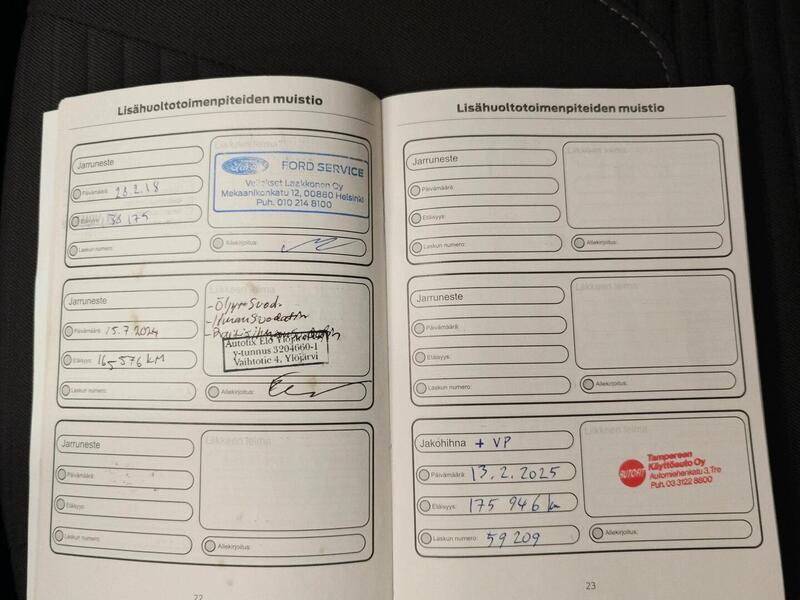 Lisähuoltotoimenpiteiden muistio
Jarruneste
Liikkeen leima
Päivämäärä: 28.2.18
Etäisyys: 38175
Laskun numero:
Ford
FORD SERVICE
Veljekset Laakkonen Oy
Mekaanikonkatu 12, 00880 Helsinki
Puh. 010 214 8100
Allekirjoitus:
Jarruneste
Liikkeen leima
Päivämäärä: 15.7.2024
Etäisyys: 165576 KM
Laskun numero:
- Öljy+Suod.
- Ilmansuodatin
Autofix Elo Ylöjärvi
y-tunnus 3204660-1
Vaihtotie 4, Ylöjärvi
Allekirjoitus:
Jarruneste
Liikkeen leima
Päivämäärä:
Etäisyys:
Laskun numero:
Allekirjoitus:
22
Lisähuoltotoimenpiteiden muistio
Jarruneste
Liikkeen leima
Päivämäärä:
Etäisyys:
Laskun numero:
Allekirjoitus:
Jarruneste
Liikkeen leima
Päivämäärä:
Etäisyys:
Laskun numero:
Allekirjoitus:
Jakohihna + VP
Liikkeen leima
Päivämäärä: 13.2.2025
Etäisyys: 175 946 km
Laskun numero: 59209
AUTOFIT
Tampereen
Käyttöauto Oy
Automiehenkatu 3, Tre
Puh. 03 3122 8800
Allekirjoitus:
23